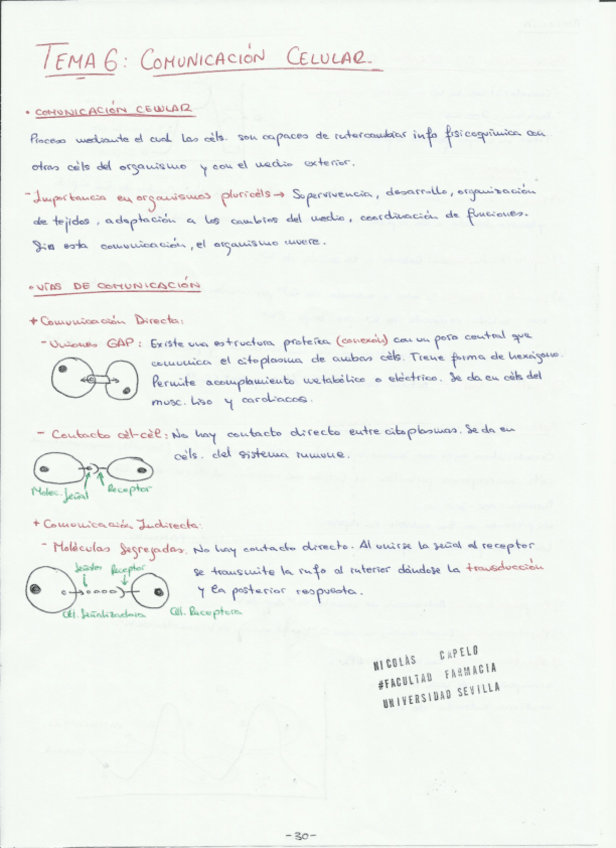 TEMA 6: COMUNICACIÓN CELULAR.
• COMUNICACIÓN CELULAR
Proceso mediante el cual las céls. son capaces de intercambiar info fisicoquímica con
otras céls del organismo y con el medio exterior.
- Importancia en organismos pluricéls → Supervivencia, desarrollo, organización
de tejidos, adaptación a los cambios del medio, coordinación de funciones.
Sin esta comunicación, el organismo muere.
• VÍAS DE COMUNICACIÓN
+ Comunicación Directa:
- Uniones GAP: Existe una estructura proteica (conexón) con un poro central que
comunica el citoplasma de ambas céls. Tiene forma de hexágono.
Permite acoplamiento metabólico o eléctrico. Se da en céls del
musc. liso y cardiacos.
- Contacto cél-cél: No hay contacto directo entre citoplasmas. Se da en
céls. del sistema inmune.
Molec. Señal Receptor
+ Comunicación Indirecta:
- Moléculas Segregadas. No hay contacto directo. Al unirse la señal al receptor
se transmite la info al interior dándose la transducción
y la posterior respuesta.
Señales Receptor
Cél. Señalizadora Cél. Receptora
NICOLÁS CAPELO
#FACULTAD FARMACIA
UNIVERSIDAD SEVILLA
-30-